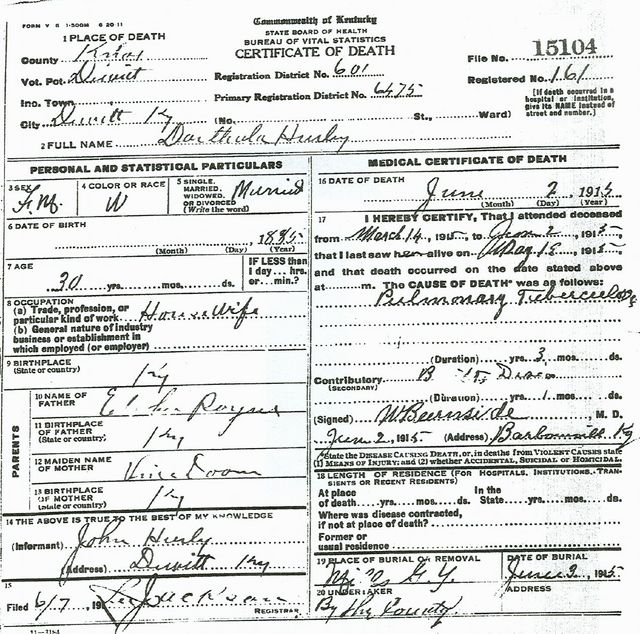 FORM V S 1-500M 6 20 11
Commonwealth of Kentucky
STATE BOARD OF HEALTH
BUREAU OF VITAL STATISTICS
CERTIFICATE OF DEATH
1 PLACE OF DEATH
County Knox
Vot. Pct. Dewitt
Inc. Town
City Dewitt Ky
Registration District No. 601
Primary Registration District No. 6475
(No. St., Ward)
File No. 15104
Registered No. 161
[If death occurred in a hospital or institution, give its NAME instead of street and number.]
2 FULL NAME Dorthula Husky
PERSONAL AND STATISTICAL PARTICULARS
3 SEX
4 COLOR OR RACE W
5 SINGLE, MARRIED, WIDOWED, OR DIVORCED (Write the word) Married
6 DATE OF BIRTH 1885
(Month) (Day) (Year)
7 AGE 30 yrs. mos. ds.
IF LESS than 1 day... hrs. or... min.?
8 OCCUPATION
(a) Trade, profession, or particular kind of work House Wife
(b) General nature of industry business or establishment in which employed (or employer)
9 BIRTHPLACE (State or country) Ky
PARENTS
10 NAME OF FATHER
11 BIRTHPLACE OF FATHER (State or country) Ky
12 MAIDEN NAME OF MOTHER
13 BIRTHPLACE OF MOTHER (State or country) Ky
14 THE ABOVE IS TRUE TO THE BEST OF MY KNOWLEDGE
(Informant) John Husky
(Address) Dewitt Ky
15
Filed 6/7, 191
REGISTRAR.
11-3184
MEDICAL CERTIFICATE OF DEATH
16 DATE OF DEATH
June 2, 1915
(Month) (Day) (Year)
17 I HEREBY CERTIFY, That I attended deceased
from March 14, 1915, to June 2, 1915,
that I last saw her alive on May 18, 1915,
and that death occurred on the date stated above
at m. The CAUSE OF DEATH* was as follows:
Pulmonary Tuberculosis
(Duration) yrs. 3 mos. ds.
Contributory
(SECONDARY)
(Duration) yrs. 1 mos. ds.
(Signed) W Burnside, M. D.
June 2, 1915 (Address) Barbourville Ky
*State the DISEASE CAUSING DEATH, or, in deaths from VIOLENT CAUSES state (1) MEANS OF INJURY; and (2) whether ACCIDENTAL, SUICIDAL or HOMICIDAL.
18 LENGTH OF RESIDENCE (FOR HOSPITALS, INSTITUTIONS, TRANSIENTS OR RECENT RESIDENTS)
At place of death yrs. mos. ds. In the State yrs. mos. ds.
Where was disease contracted, if not at place of death?
Former or usual residence
19 PLACE OF BURIAL OR REMOVAL
G. Y.
DATE OF BURIAL
June 3, 1915
20 UNDERTAKER
By the County
ADDRESS